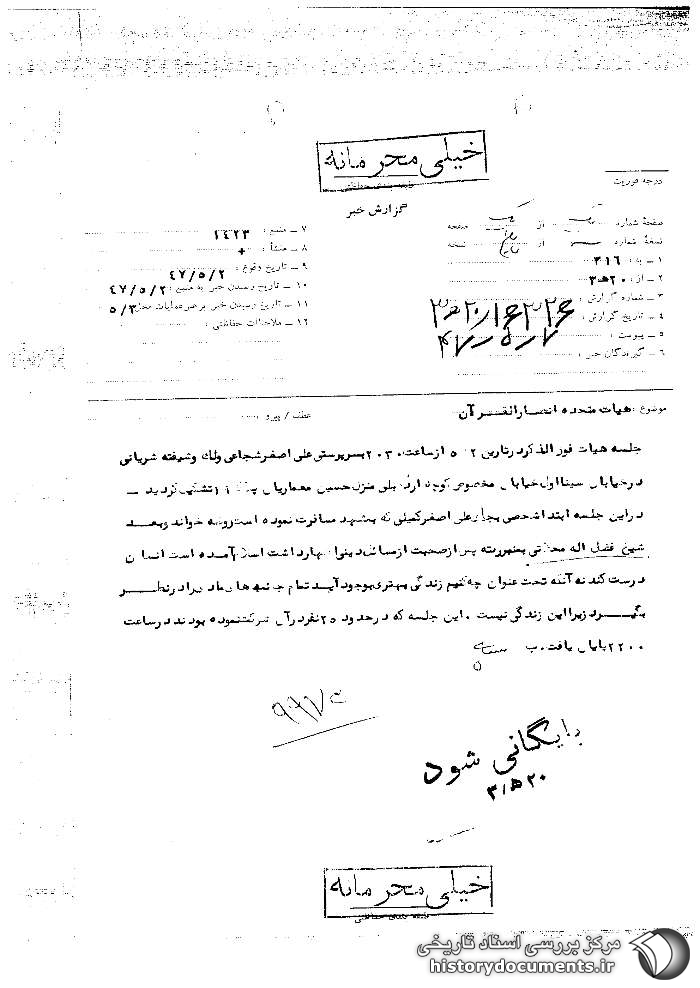 خیلی محرمانه
طبقه بندی حفاظتی
درجه فوریت
گزارش خبر
صفحهٔ شماره از صفحه
نسخهٔ شماره از نسخه
۱ ـ به : ۳۱۶
۲ ـ از : ۲۰ ه‍ ۳
۳ ـ شماره گزارش :
۴ ـ تاریخ گزارش :
۵ ـ پیوست :
۶ ـ گیرندگان خبر :
۷ ـ منبع : ۱۴۲۳
۸ ـ منشأ :
۹ ـ تاریخ وقوع : ۴۷/۵/۲
۱۰ ـ تاریخ رسیدن خبر به منبع : ۴۷/۵/۲
۱۱ ـ تاریخ رسیدن خبر به رهبر عملیات محل : ۵/۳
۱۲ ـ ملاحظات حفاظتی :
موضوع : هیات متحده انصارالقرآن
عطف / پیرو
جلسه هیات فوق الذکر در تاریخ ۵/۲ از ساعت ۲۰۳۰ بسرپرستی علی اصغر شجاعی و شیفته شربانی
در خیابان سینا اول خیابان مخصوص کوچه منزل حسین معماریان تشکیل گردید ـ
در این جلسه ابتدا شخصی بجای علی اصغر کمیلی که بمشهد مسافرت نموده است روضه خواند و بعد
شیخ فضل اله محلاتی بمنبر رفته پس از صحبت از مسائل دینی اظهار داشت اسلام آمده است انسان
درست کند نه آنکه تحت عنوان چه کنیم زندگی بهتری بوجود آید تمام جنبه های مادی را در نظر
بگیرد زیرا این زندگی نیست . این جلسه که در حدود ۲۵ نفر در آن شرکت نموده بودند در ساعت
۲۲۰۰ پایان یافت . ب
بایگانی شود
۲۰ ه‍ ۳
خیلی محرمانه
طبقه بندی حفاظتی
مرکز بررسی اسناد تاریخی
historydocuments.ir